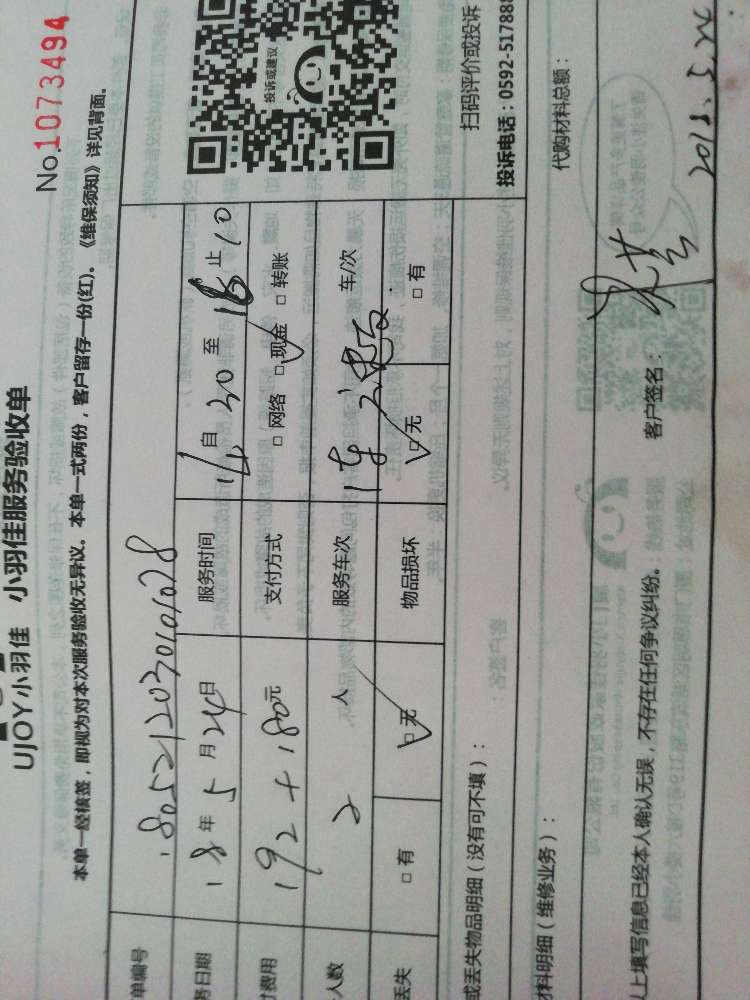 No.1073494
UJOY小羽佳 小羽佳服务验收单
本单一经核签，即视为对本次服务验收无异议。本单一式两份，客户留存一份(红)。《维保须知》详见背面。
单编号 1805212030101078
务日期 18年5月24日 服务时间 14自30至18止10
费用 192+180元 支付方式 □网络 □现金 □转账
人数 2人 服务车次 车/次
丢失 □有 □无 物品损坏 □无 □有
投诉或建议
扫码评价或投诉
投诉电话：0592-51788
或丢失物品明细（没有可不填）：
材料明细（维修业务）： 代购材料总额：
以上填写信息已经本人确认无误，不存在任何争议纠纷。 客户签名： 2018.5.24